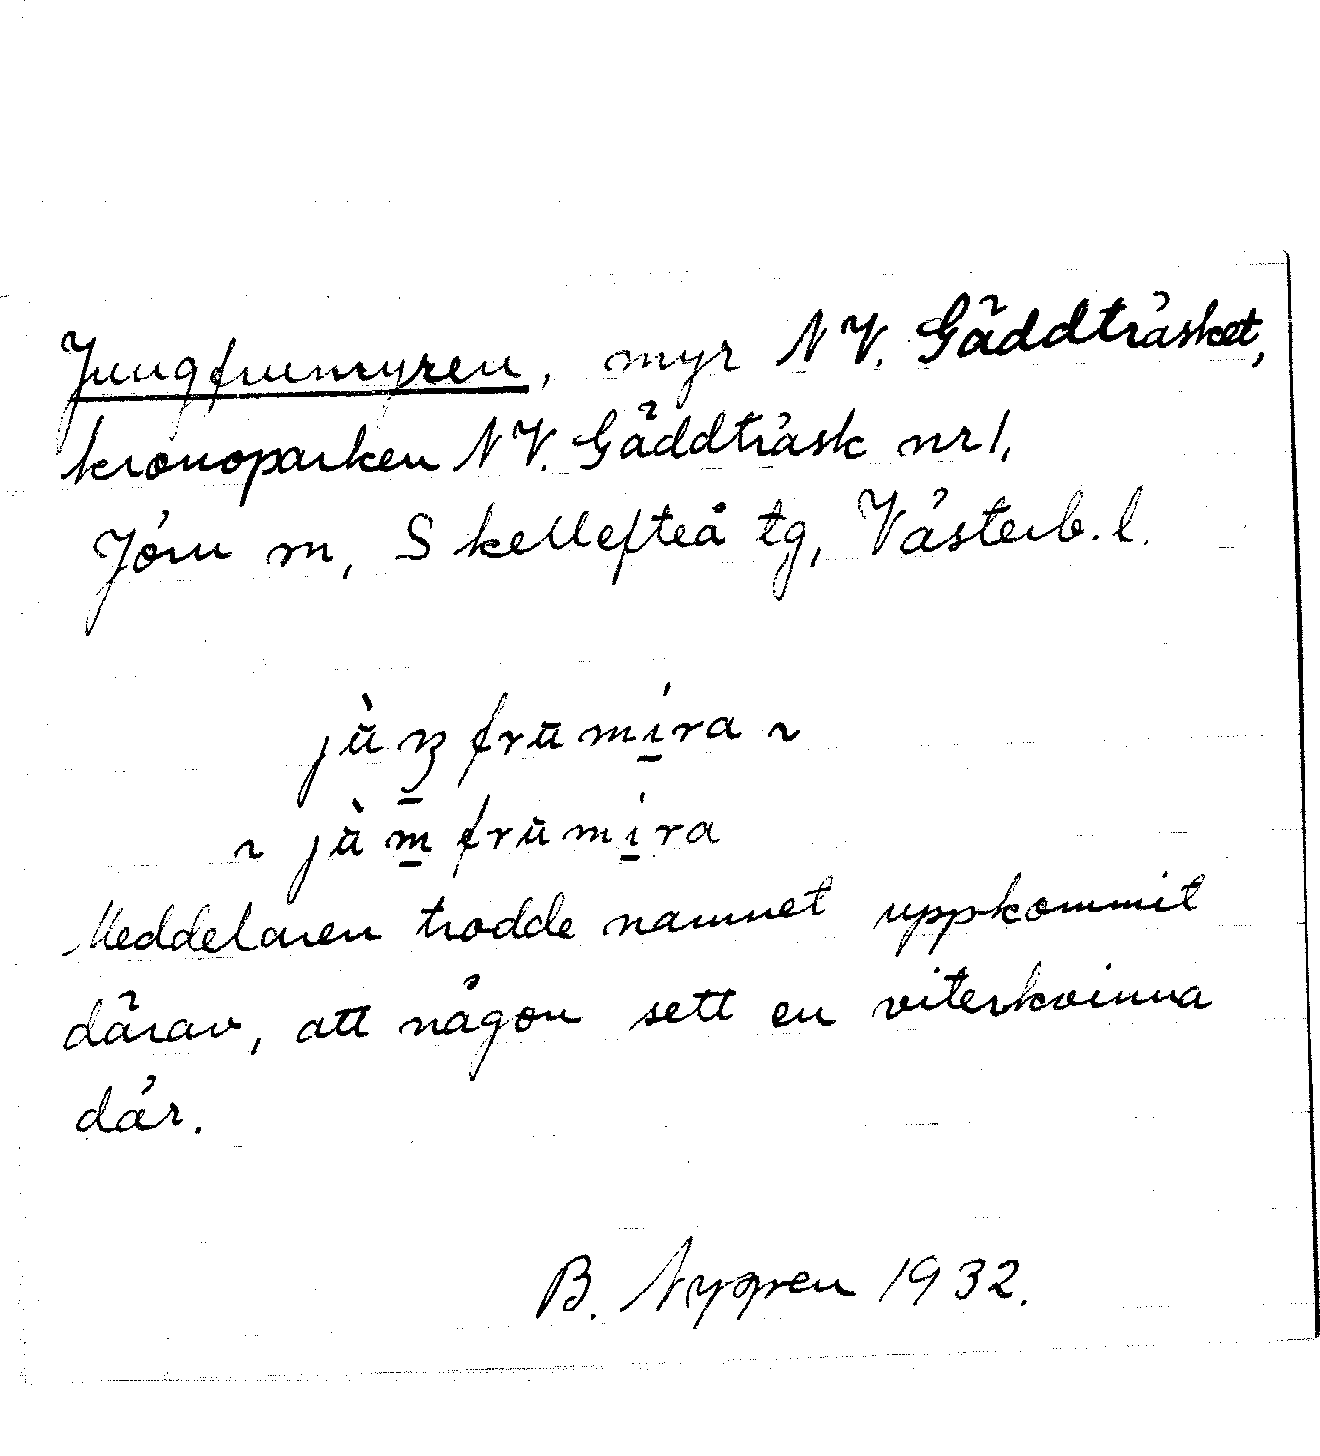 Jungfrumyren, myr NV. Gäddträsket,
kronoparken NV. Gäddträsk nr 1,
Jörn m, Skellefteå tg, Västerb. l.
jùŋfrūmíra ~
~ jùm̲frūmi̲ra
Meddelaren trodde namnet uppkommit
därav, att någon sett en viterkvinna
där.
B. Nygren 1932.